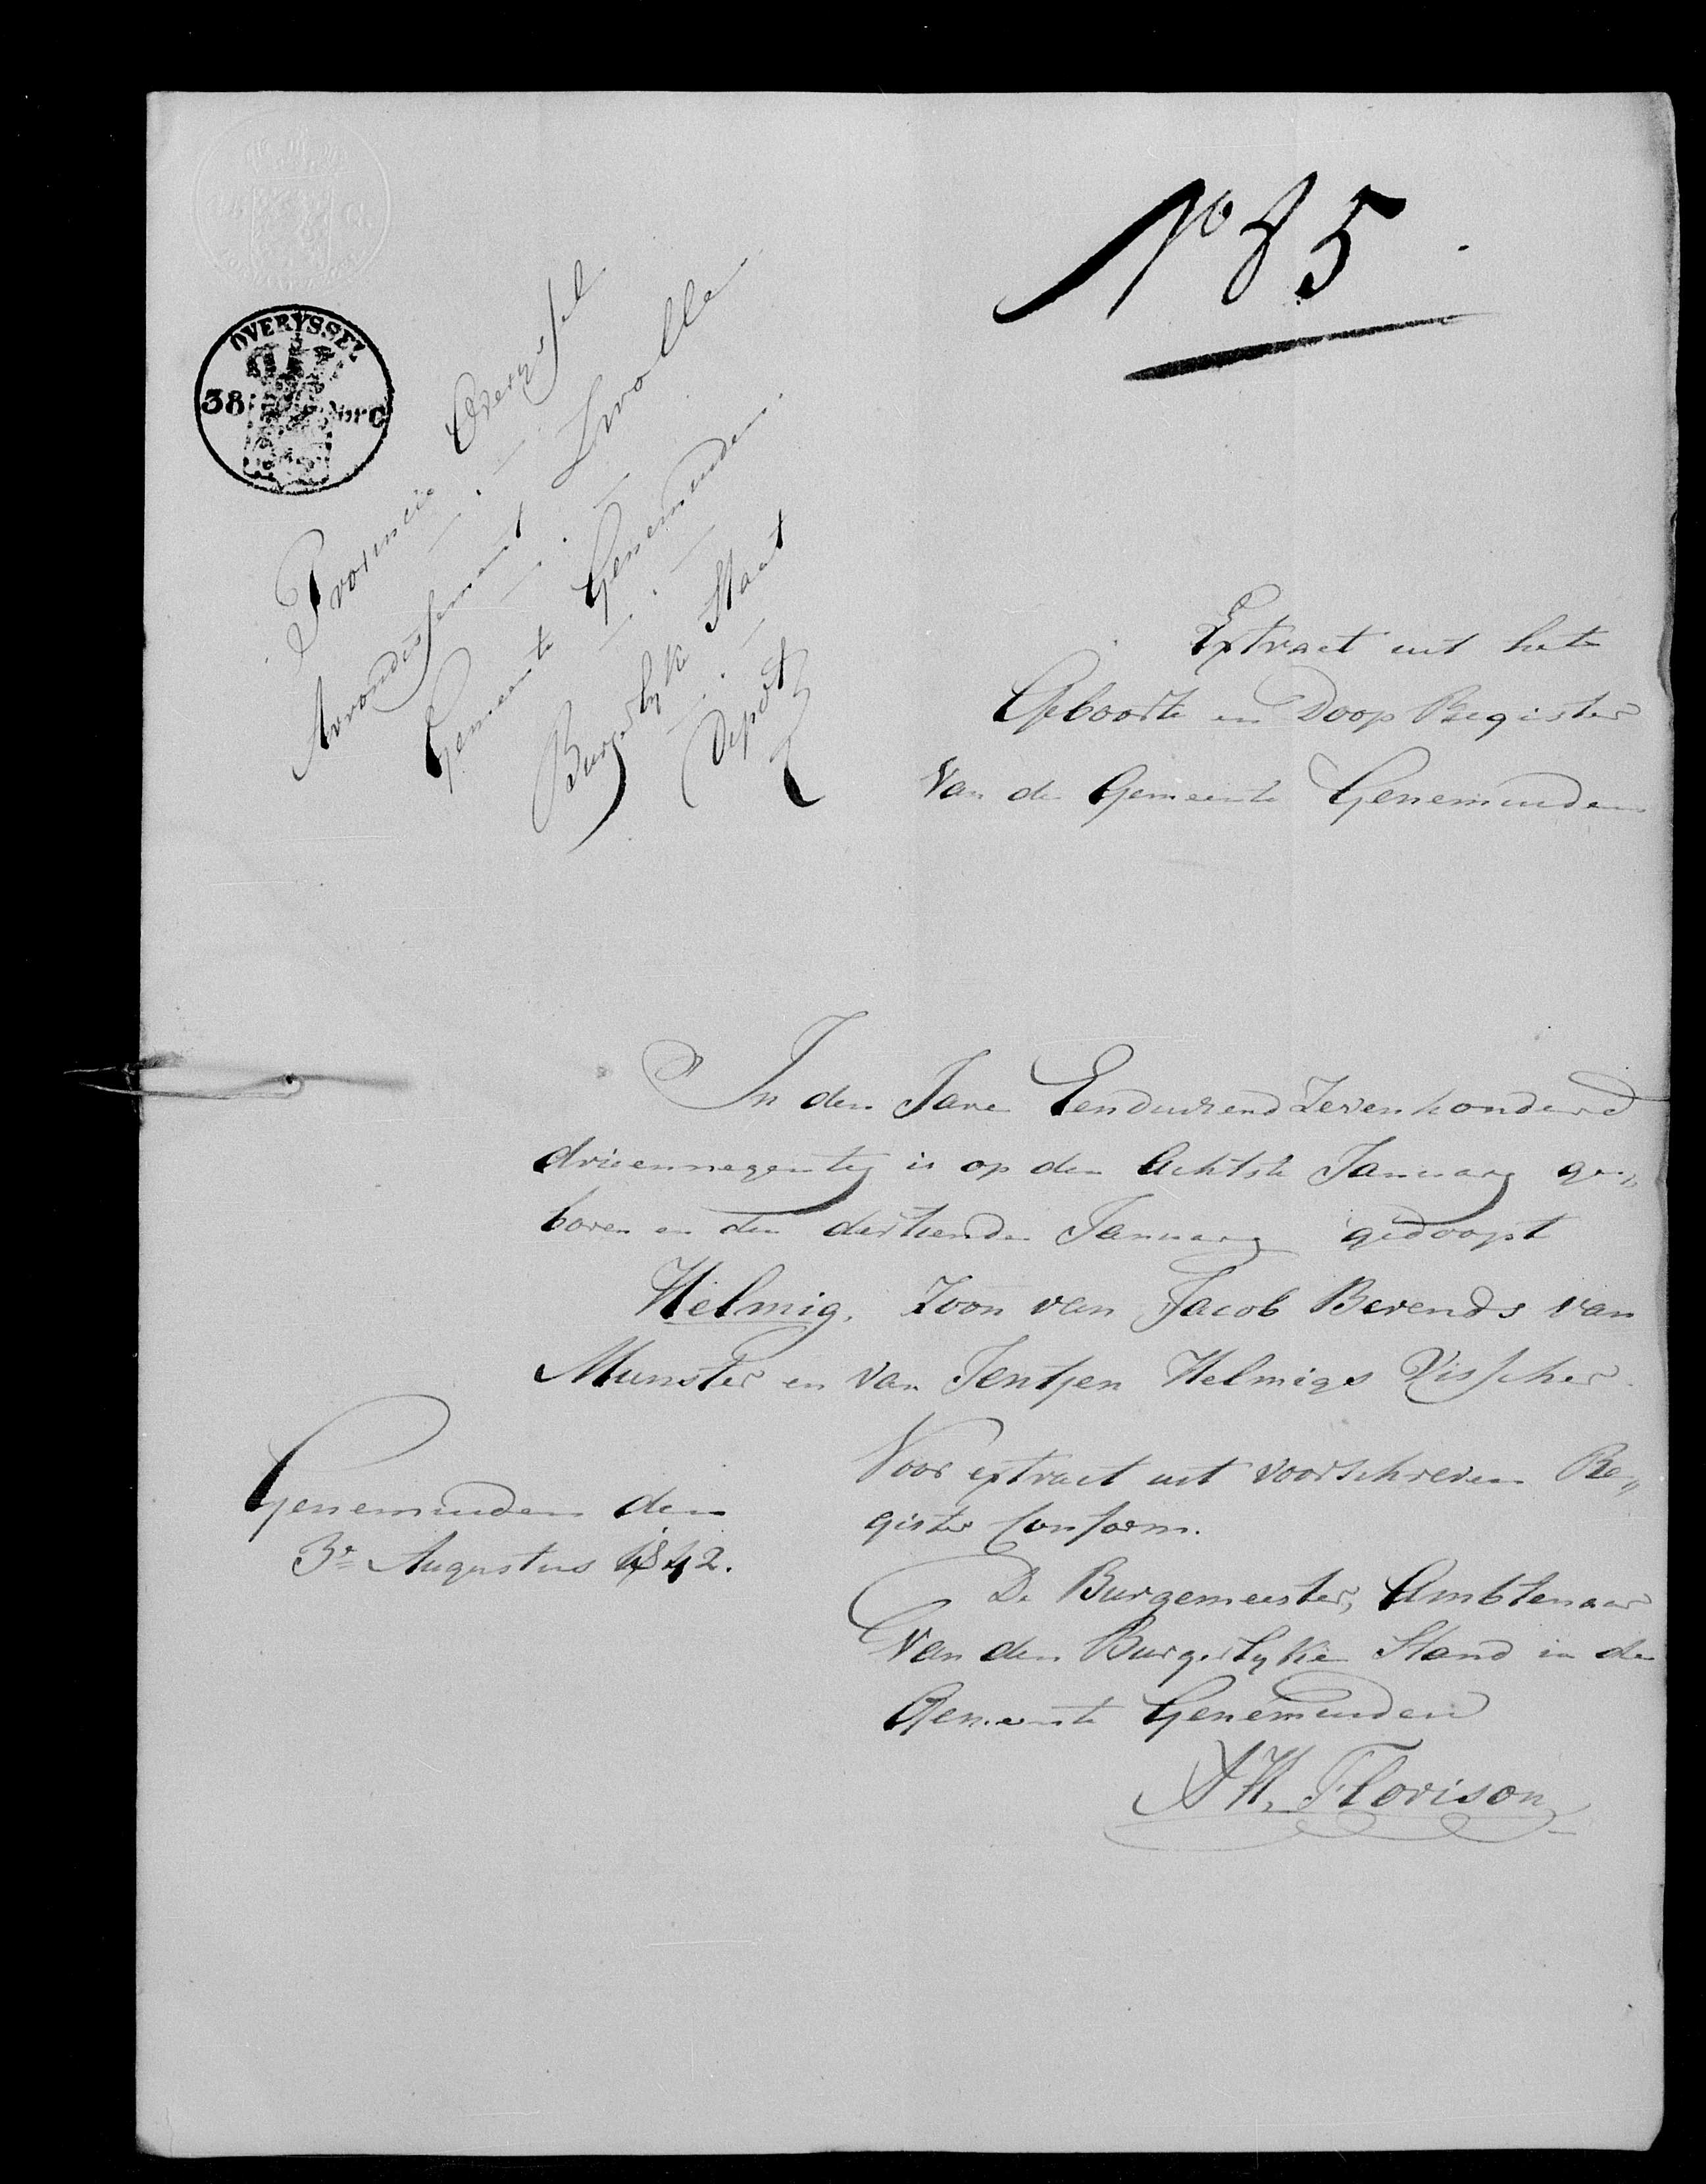 No 85.
OVERYSSEL
38
Provincie Overyssel
Arrondissement Zwolle
Gemeente Genemuiden
Burgerlyk Staat
Depôt
Extract uit het
Geboorte en Doop Register
Van de Gemeente Genemuiden
In den Jare Eenduizend Zevenhonderd
drieennegentig is op den Achtste January ge„
boren en den dertienden January gedoopt
Helmig, Zoon van Jacob Berends van
Munster en van Jentjen Helmigs Visscher.
Voor extract uit voorschreven Re„
gister Conform.
Genemuiden den
3e Augustus 1842.
De Burgemeester, Ambtenaar
Van den Burgerlyken Stand in de
Gemeente Genemuiden
AH. Florison